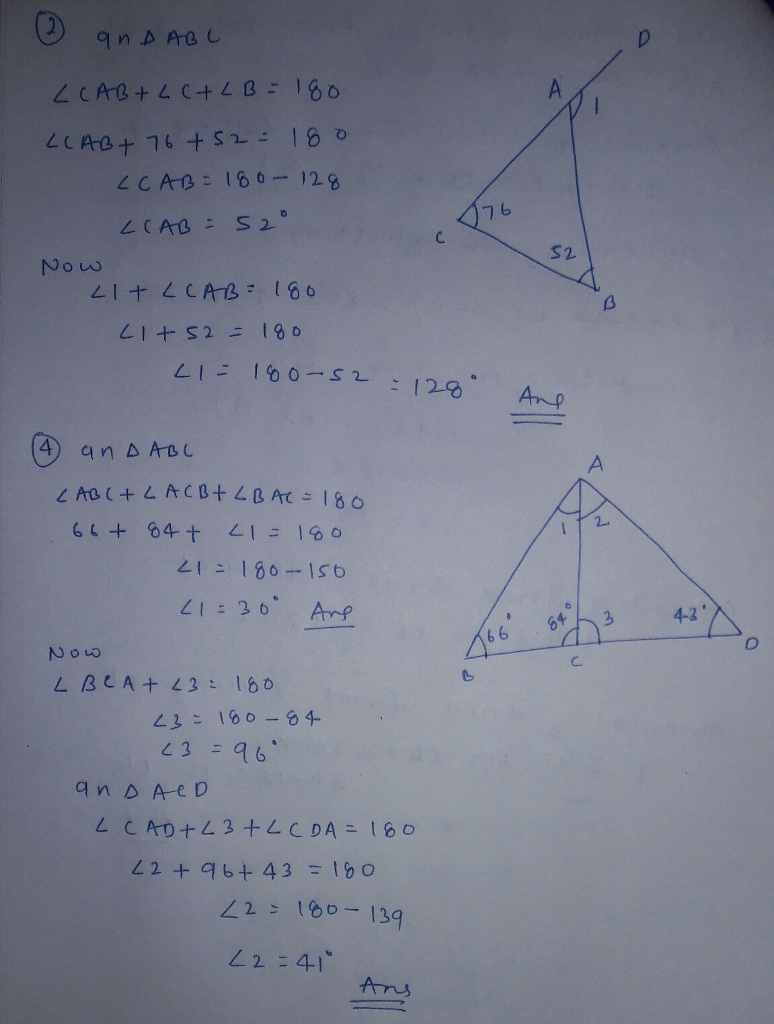 ② In △ ABC
∠CAB + ∠C + ∠B = 180
∠CAB + 76 + 52 = 180
∠CAB = 180 - 128
∠CAB = 52°
Now
∠1 + ∠CAB = 180
∠1 + 52 = 180
∠1 = 180 - 52 = 128° Ans
D
A
1
76
C
52
B
④ In △ ABC
∠ABC + ∠ACB + ∠BAC = 180
66 + 84 + ∠1 = 180
∠1 = 180 - 150
∠1 = 30° Ans
Now
∠BCA + ∠3 = 180
∠3 = 180 - 84
∠3 = 96°
In △ ACD
∠CAD + ∠3 + ∠CDA = 180
∠2 + 96 + 43 = 180
∠2 = 180 - 139
∠2 = 41°
Ans
A
1 2
66° 84° 3 43°
B C D